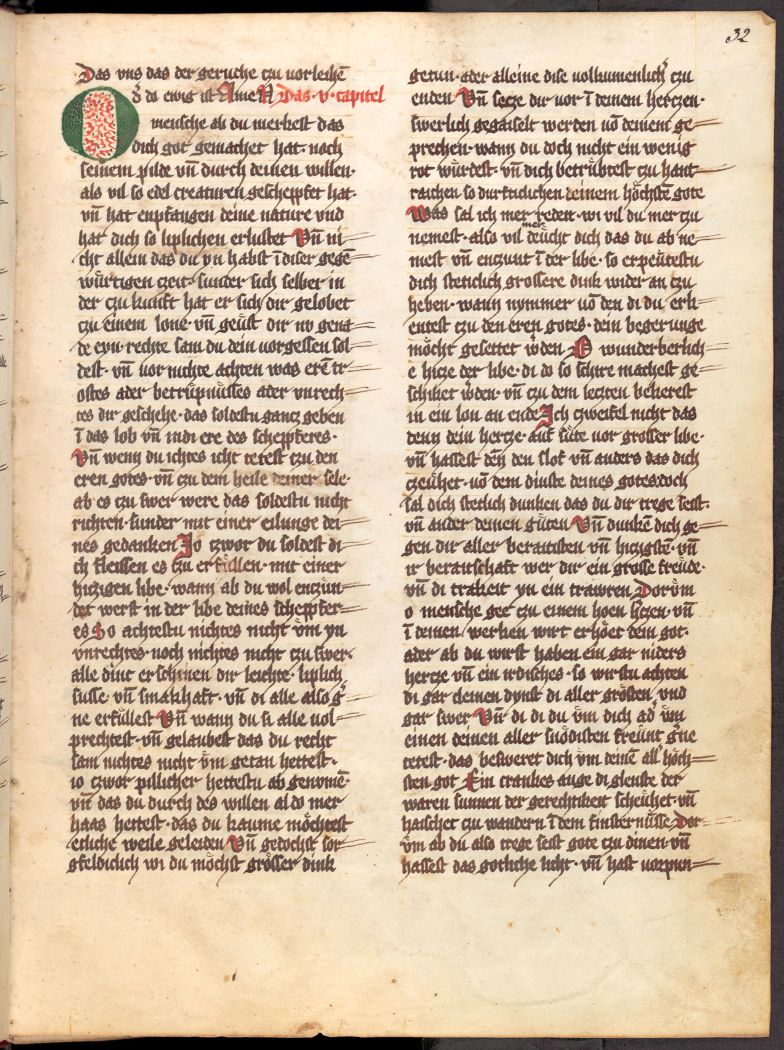 32
Das vns das der geruche czu uorleihē
d' da ewig ist AmeN Das · v · capitel
O mensche ab du merkest das
dich got gemachet hat · noch
seinem pilde vn̄ durch deinen willen ·
als vil so edel creaturen geschepfet hat ·
vn̄ hat enpfangen deine nature vnd
hat dich so liplichen erlustet Vn̄ ni-
cht allein das du yn habst ī diser gegē
würtigen czeit · sunder sich selber in
der czu kunft hat er sich dir gelobet
czu einem lone · vn̄ geust dir nv gena-
de eyn · rechte sam du dein uorgessen sol-
dest · vn̄ vor nichte achten was erē tr-
ostes ader betrüpnüsses ader vnrech-
tes dir geschehe · das soldestu gancz geben
ī das lob vn̄ in di ere des schepferes ·
Vn̄ wenn du ichtes icht tetest czu den
eren gotes · vn̄ czu dem heile deiner sele ·
ab es czu swer were das soldestu nicht
richten · sunder mit einer eilunge dei-
nes gedanken Jo czwor du soldest di-
ch fleissen es czu erfüllen · mit einer
hiczigen libe · wann ab du wol enczun-
det werst in der libe deines schepfer-
es So achtestu nichtes nicht vm yn
vnrechtes · noch nichtes nicht czu swer ·
alle dint erschinen dir leichte · liplich
susse · vn̄ smakhaft · vn̄ di alle also g'-
ne erfüllest Vn̄ wann du si alle uol-
prechtest · vn̄ gelaubest das du recht
sam nichtes nicht vm getan hettest ·
io czwor pillicher hettestu ab genomē ·
vn̄ das du durch des willen al do mer
haas hettest · das du kaume möchtest
etliche weile geleiden Vn̄ gedochst sor-
gfeldiclich wi du möchst grösser dink
getun · ader alleine dise volkumenlich' czu
enden Vn̄ secze dir uor ī deinem herczen ·
swerlich gegaiselt werden uō deinem ge-
prechen · wann du doch nicht ein wenig
rot würdest · vn̄ dich betrübtest czu hant
rauchen so durfticlichen deinem höchsten gote
Was sal ich mer reden · wi vil du mer czu
nemest · also vil mer deucht dich das du ab ne-
mest vn̄ enczunt ī der libe · so erpeutestu
dich steticlich grossere dink wider an czu
heben · wann nymmer uō den di du erk-
entest czu den eren gotes · dein begerunge
möcht gesettet w'den O wunderberlich-
e hicze der libe · di do so schire machest ge-
schiket w'den · vn̄ czu dem leczten beherest
in ein lon an ende Ich czweifel nicht das
denn dein hercze · auf süte uor grosser libe ·
vn̄ hassest den den slof vn̄ anders das dich
czeühet · uō dem dinste deines gotes · doch
sal dich stetlich dunken das du dir trege seist ·
vn̄ ander deinen güten Vn̄ dunken dich ge-
gen dir aller beraitisten vn̄ hiczigstē · vn̄
ir beraitschaft wer dir ein grosse freüde ·
vn̄ di trakeit yn ein trawren Dorüm
o mensche gee czu einem hoen hczen · vn̄
ī deinen werken wirt erhöet dein got ·
ader ab du wirst haben ein gar niders
hercze vn̄ ein irdisches · so wirstu achten
di gar cleinen dynst di aller grösten vnd
gar swer Vn̄ di di du üm dich ad' vm
einen deinen aller snödisten freünt g'ne
tetest · das besweret dich vm deinē all' höch-
sten got Ein crankes auge di glenste der
waren sunnen der gerechtikeit scheühet · vn̄
haischet czu wandern ī dem finsternüsse Dor-
üm ab du also trege seist gote czu dinen · vn̄
hassest das gotliche licht · vn̄ hast uorpun-